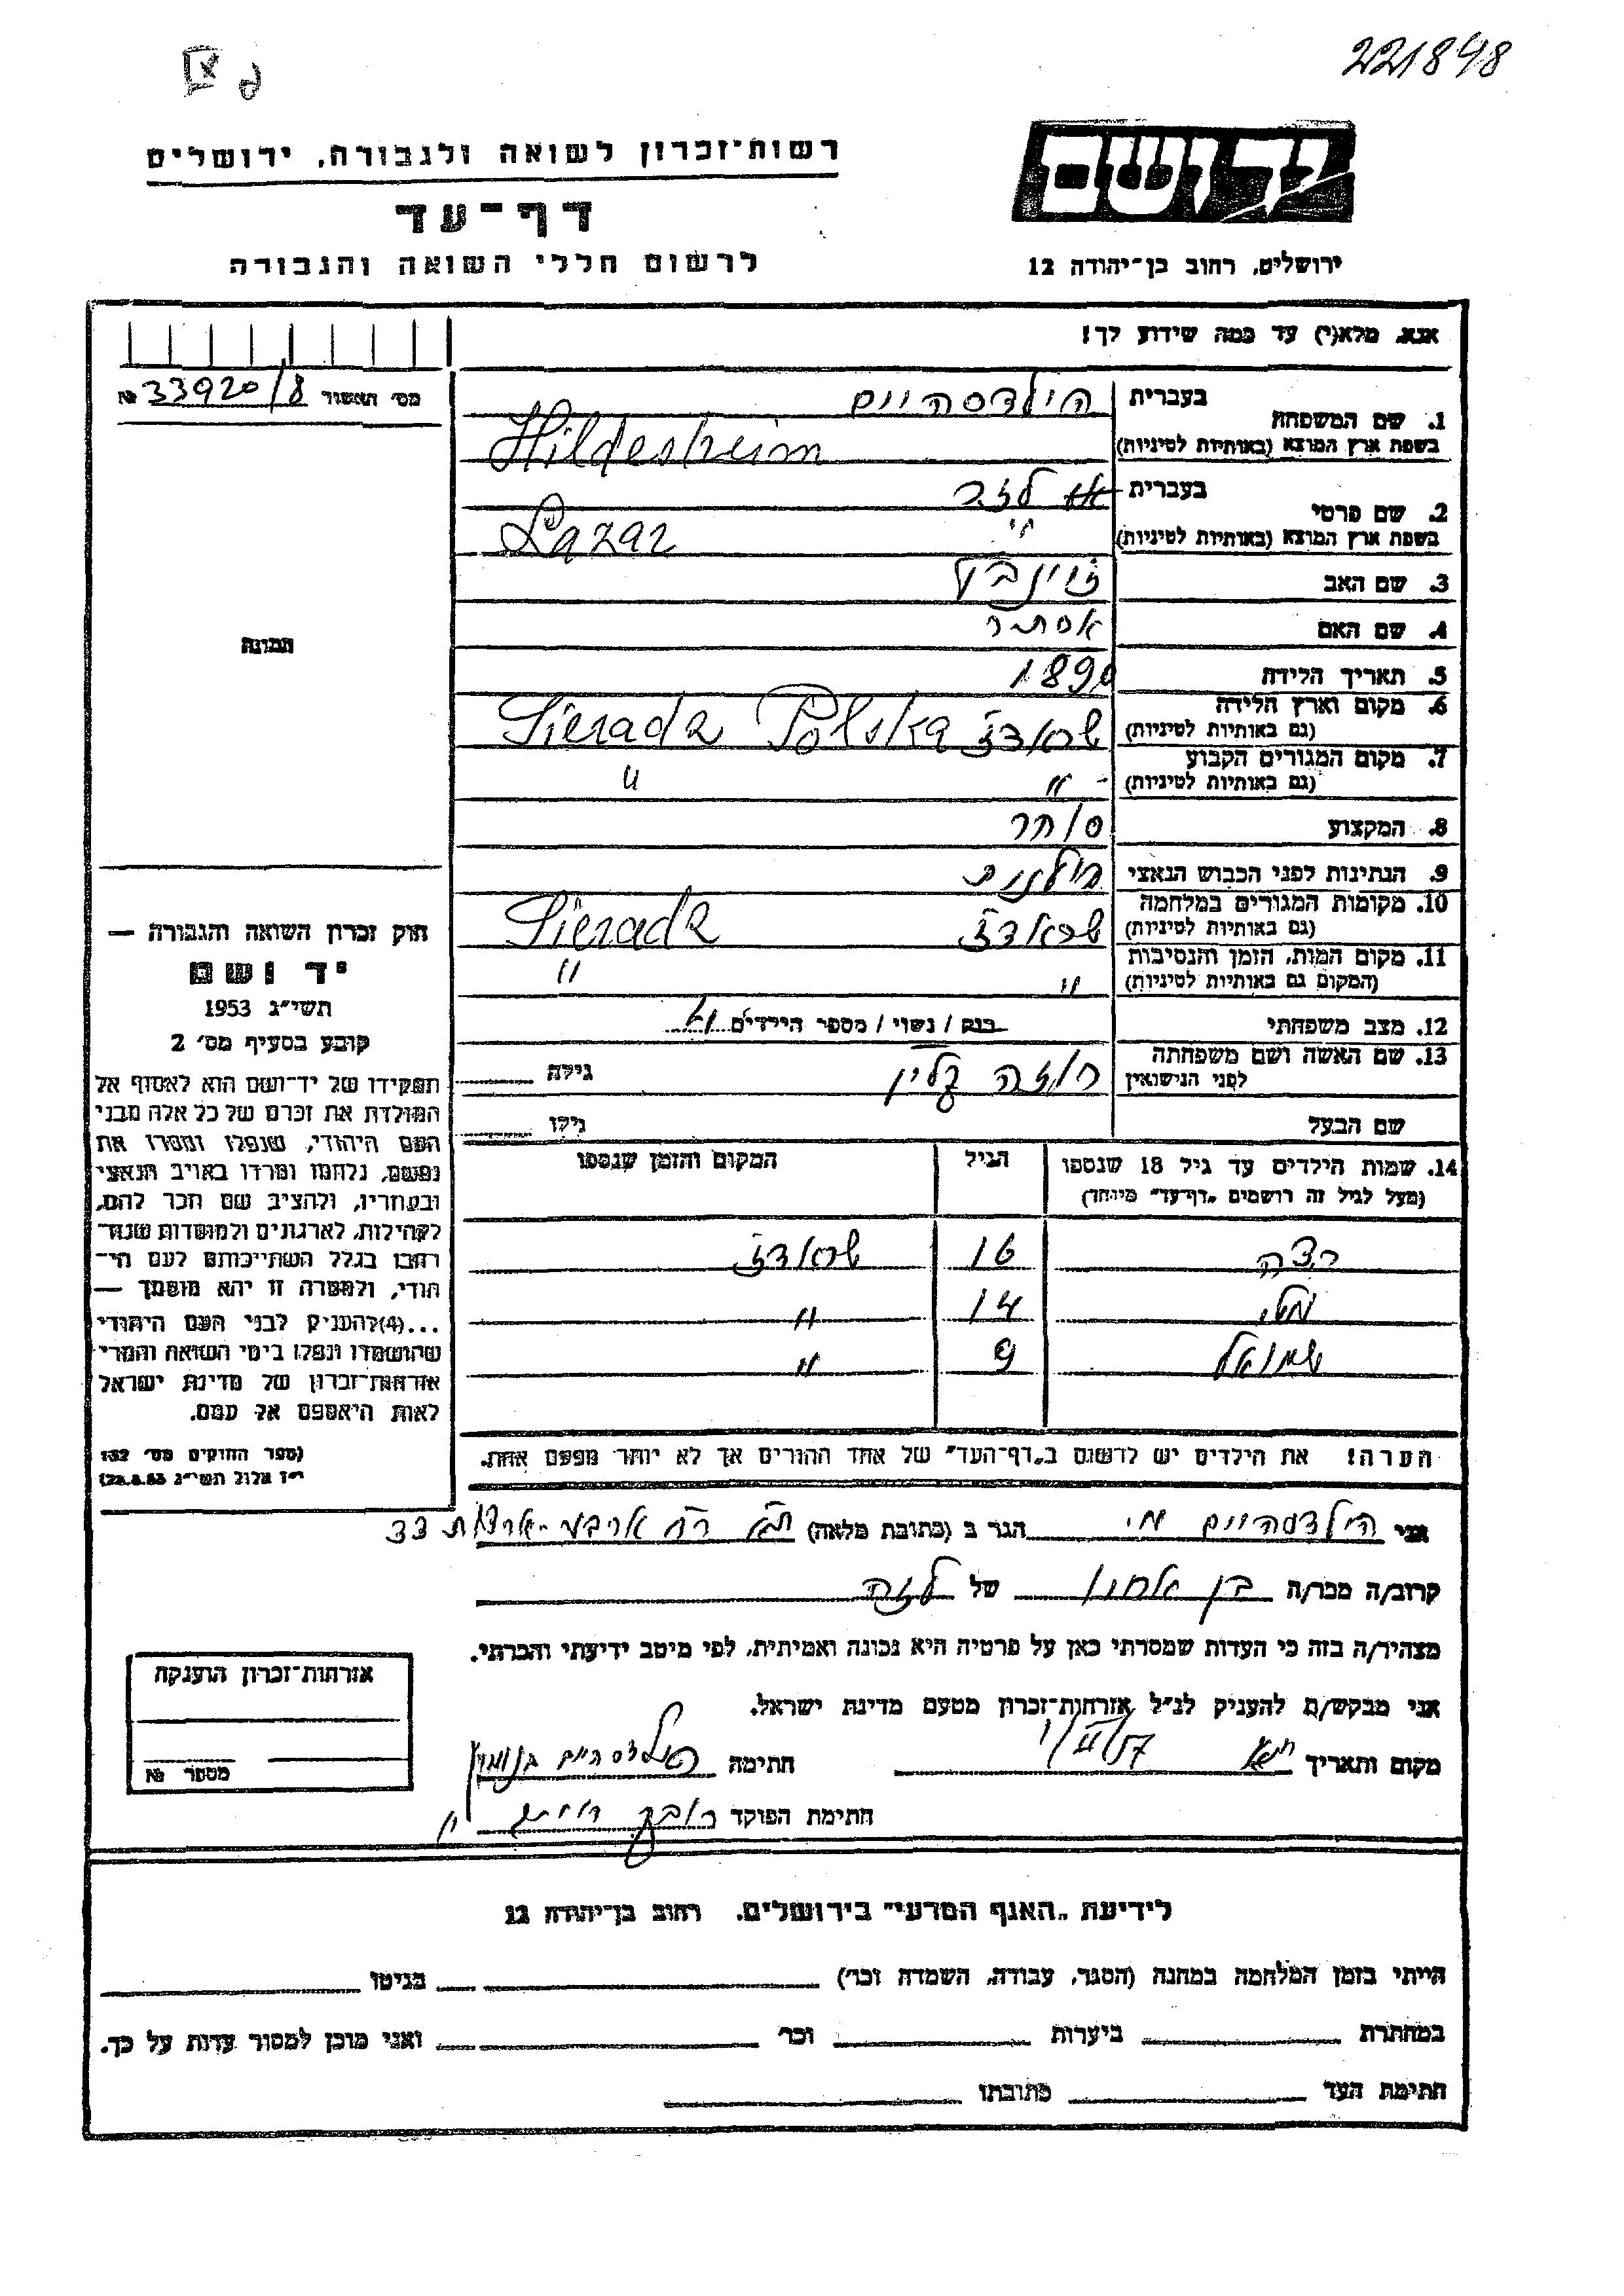 221848
רשות־זכרון לשואה ולגבורה, ירושלים
דף־עד
לרשום חללי השואה והגבורה
יד ושם
ירושלים, רחוב בן־יהודה 12
אנא, מלא(י) עד כמה שידוע לך!
מס׳ האשור 33920/8 №
1. שם המשפחה בעברית הילדסהיים
בשפת ארץ המוצא (באותיות לטיניות) Hildesheim
2. שם פרטי בעברית לזר
בשפת ארץ המוצא (באותיות לטיניות) Lazar
3. שם האב
4. שם האם אסתר
5. תאריך הלידה 1890
6. מקום וארץ הלידה (גם באותיות לטיניות) שראדז Sieradz Polska
7. מקום המגורים הקבוע (גם באותיות לטיניות) " "
8. המקצוע סוחר
9. הנתינות לפני הכבוש הנאצי פולנית
10. מקומות המגורים במלחמה (גם באותיות לטיניות) שראדז Sieradz
11. מקום המות, הזמן והנסיבות (המקום גם באותיות לטיניות) " "
12. מצב משפחתי רווק / נשוי / מספר הילדים
13. שם האשה ושם משפחתה לפני הנישואין רוזה קליין גילה
שם הבעל גילו
14. שמות הילדים עד גיל 18 שנספו (מעל לגיל זה רושמים „דף־עד" מיוחד) הגיל המקום והזמן שנספו
16 שראדז
14 "
שמואל 9 "
הערה! את הילדים יש לרשום ב„דף־העד" של אחד ההורים אך לא יותר מפעם אחת.
תמונה
חוק זכרון השואה והגבורה —
יד ושם
תשי״ג 1953
קובע בסעיף מס׳ 2
תפקידו של יד־ושם הוא לאסוף אל
המולדת את זכרם של כל אלה מבני
העם היהודי, שנפלו ומסרו את
נפשם, נלחמו ומרדו באויב הנאצי
ובעוזריו, ולהציב שם וזכר להם,
לקהילות, לארגונים ולמוסדות שנח־
רבו בגלל השתייכותם לעם הי־
הודי, ולמטרה זו יהא מוסמך —
...(4) להעניק לבני העם היהודי
שהושמדו ונפלו בימי השואה והמרי
אזרחות־זכרון של מדינת ישראל
לאות היאספם אל עמם.
(ספר החוקים מס׳ 132
י״ז אלול תשי״ג 28.8.53)
אני הילדסהיים הגר ב (כתובת מלאה) ת״א רח׳ ארבע־ארצות 33
קרוב/ה מכר/ה בן אחיו של לזר
מצהיר/ה בזה כי העדות שמסרתי כאן על פרטיה היא נכונה ואמיתית, לפי מיטב ידיעתי והכרתי.
אני מבקש/ת להעניק לנ״ל אזרחות־זכרון מטעם מדינת ישראל.
מקום ותאריך ת״א 1/II/57 חתימה הילדסהיים
חתימת הפוקד
אזרחות־זכרון הוענקה
מספר №
לידיעת „האגף המדעי" בירושלים, רחוב בן־יהודה 12
הייתי בזמן המלחמה במחנה (הסגר, עבודה, השמדה וכו׳) בגיטו
במחתרת ביערות וכו׳ ואני מוכן למסור עדות על כך.
חתימת העד כתובתו